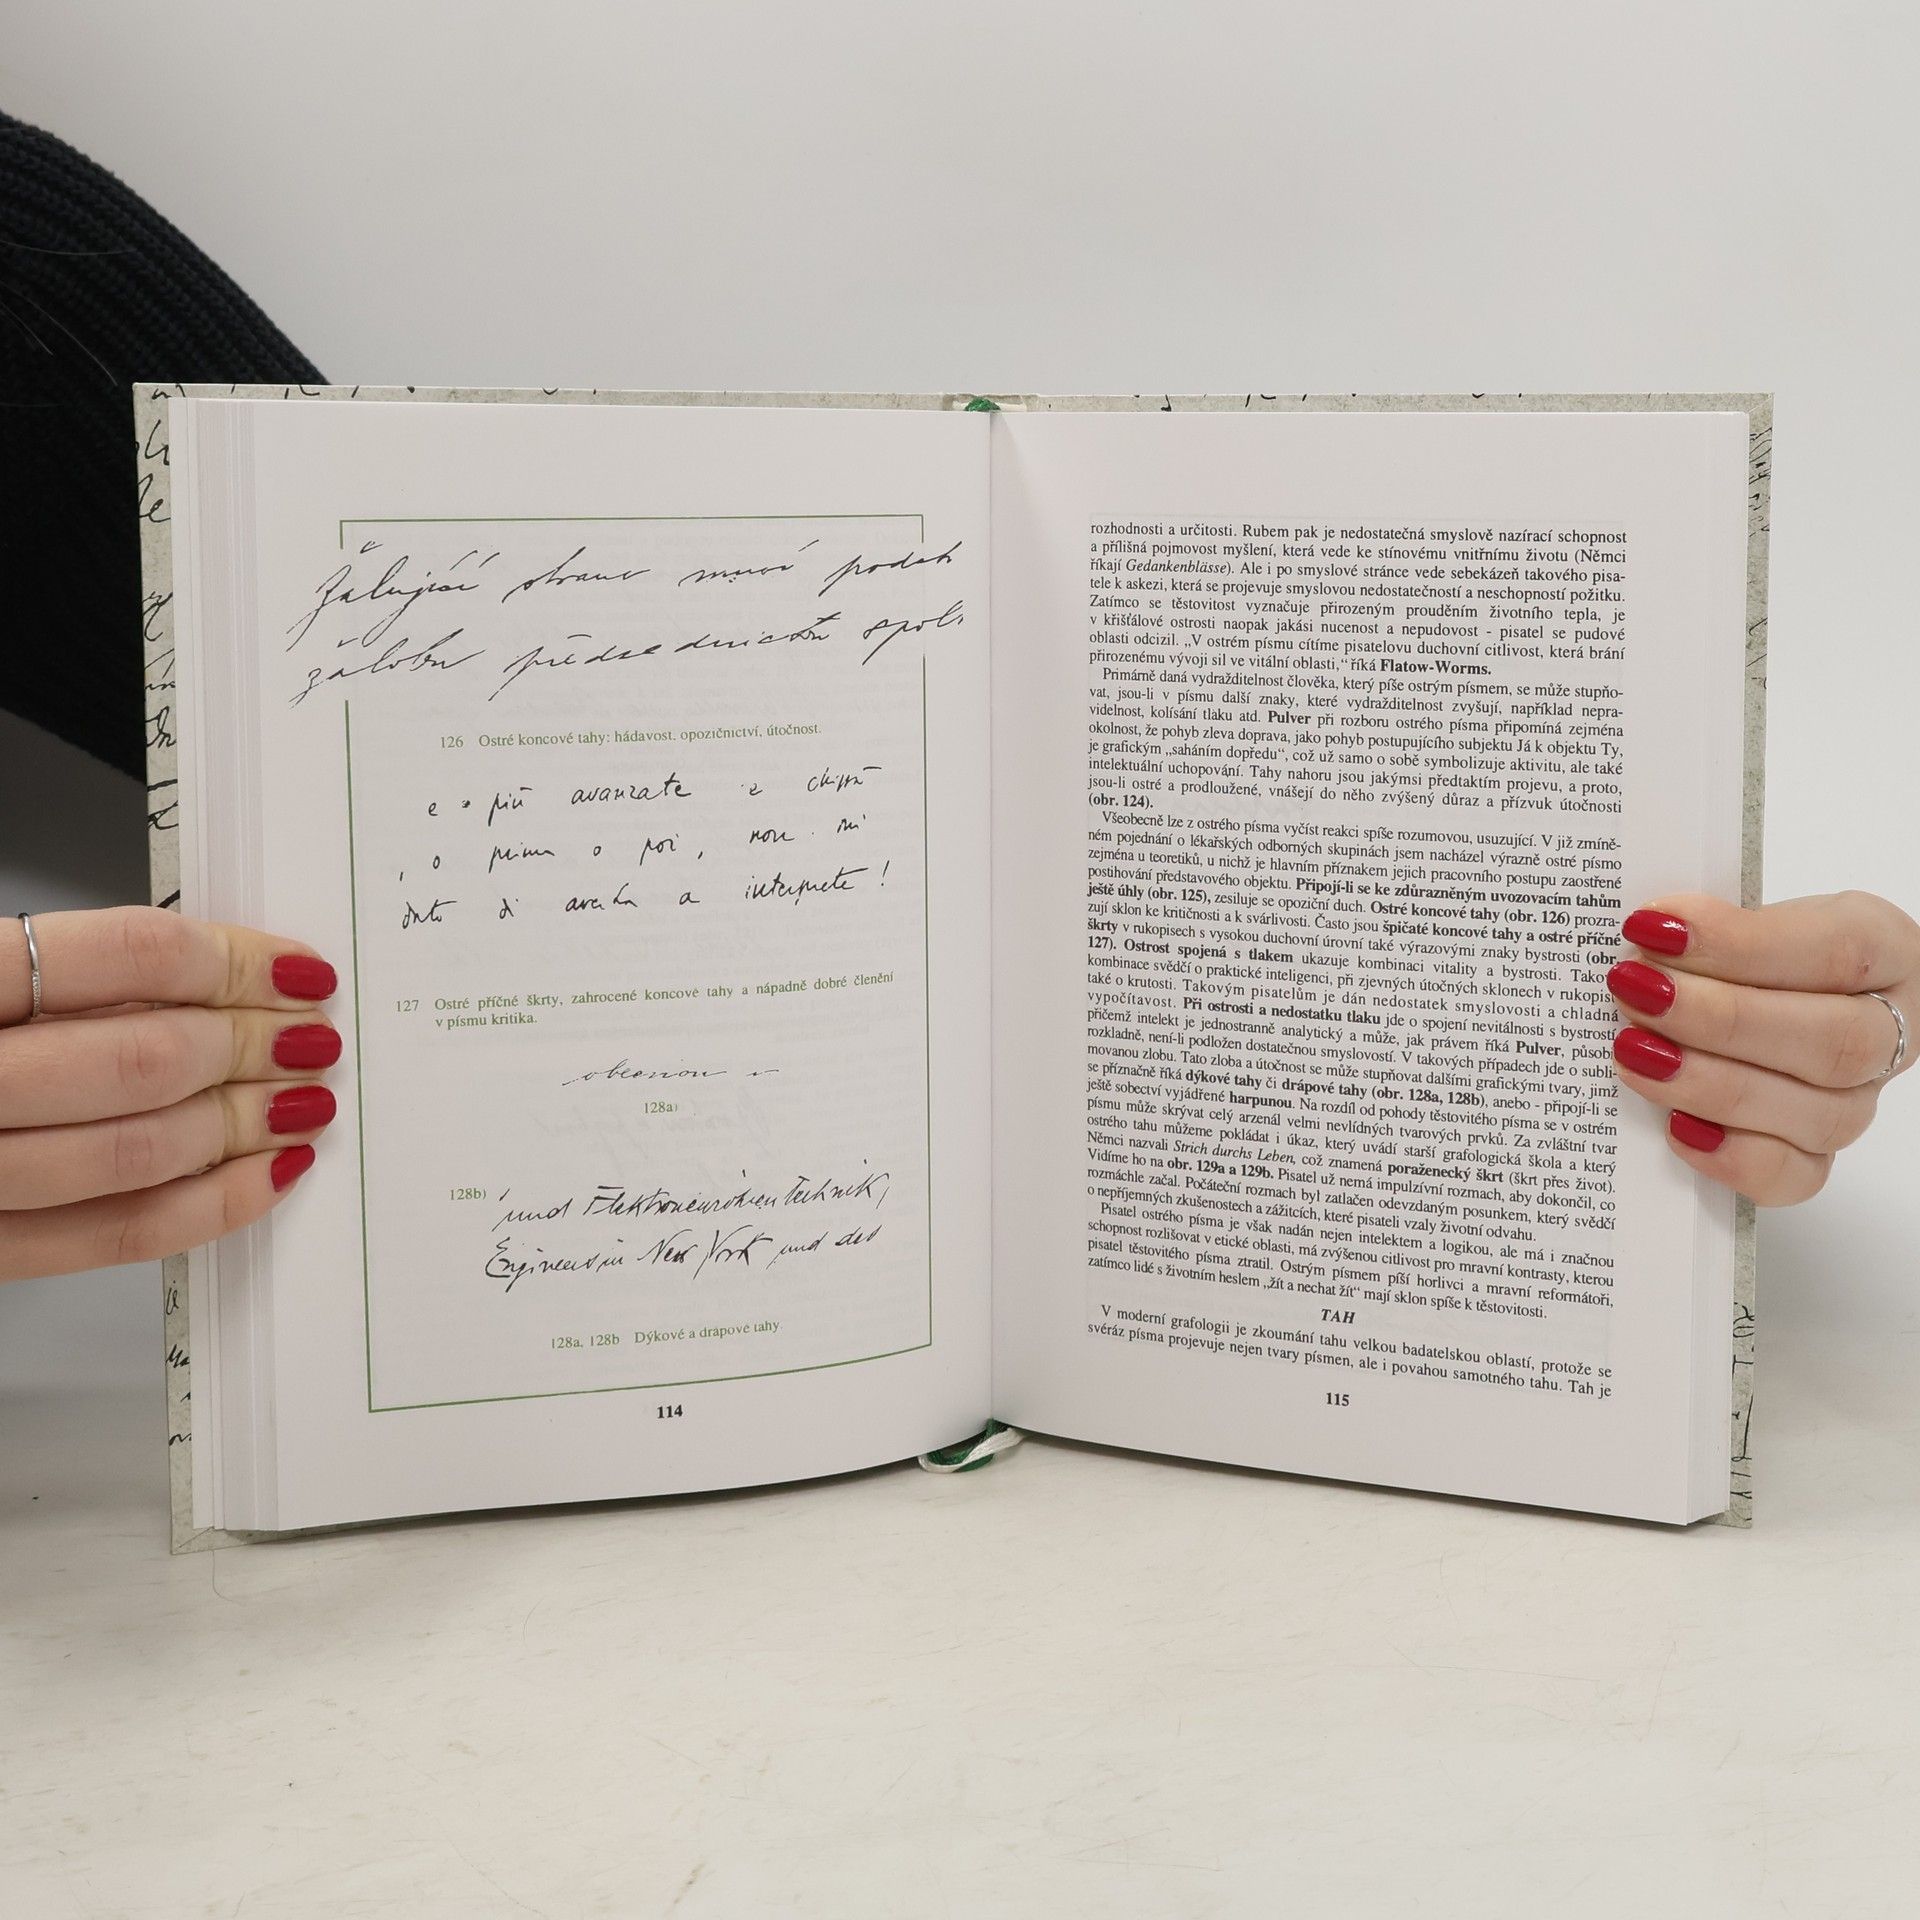 Žalující strana musí podat
žalobu předsednictvu
126 Ostré koncové tahy: hádavost, opozičnictví, útočnost.
e più avanzate e
, o prima o poi, non mi
di a interprete!
127 Ostré příčné škrty, zahrocené koncové tahy a nápadně dobré členění
v písmu kritika.
128a)
128b)
und
Engineers in New York und des
128a, 128b Dýkové a drápové tahy.
114
rozhodnosti a určitosti. Rubem pak je nedostatečná smyslově nazírací schopnost
a přílišná pojmovost myšlení, která vede ke stínovému vnitřnímu životu (Němci
říkají Gedankenblässe). Ale i po smyslové stránce vede sebekázeň takového pisa-
tele k askezi, která se projevuje smyslovou nedostatečností a neschopností požitku.
Zatímco se těstovitost vyznačuje přirozeným prouděním životního tepla, je
v křišťálové ostrosti naopak jakási nucenost a nepudovost - pisatel se pudové
oblasti odcizil. „V ostrém písmu cítíme pisatelovu duchovní citlivost, která brání
přirozenému vývoji sil ve vitální oblasti,“ říká Flatow-Worms.
Primárně daná vydrážditelnost člověka, který píše ostrým písmem, se může stupňo-
vat, jsou-li v písmu další znaky, které vydrážditelnost zvyšují, například nepra-
videlnost, kolísání tlaku atd. Pulver při rozboru ostrého písma připomíná zejména
okolnost, že pohyb zleva doprava, jako pohyb postupujícího subjektu Já k objektu Ty,
je grafickým „saháním dopředu“, což už samo o sobě symbolizuje aktivitu, ale také
intelektuální uchopování. Tahy nahoru jsou jakýmsi předtaktím projevu, a proto,
jsou-li ostré a prodloužené, vnášejí do něho zvýšený důraz a přízvuk útočnosti
(obr. 124).
Všeobecně lze z ostrého písma vyčíst reakci spíše rozumovou, usuzující. V již zmíně-
ném pojednání o lékařských odborných skupinách jsem nacházel výrazně ostré písmo
zejména u teoretiků, u nichž je hlavním příznakem jejich pracovního postupu zaostřené
postihování představového objektu. Připojí-li se ke zdůrazněným uvozovacím tahům
ještě úhly (obr. 125), zesiluje se opoziční duch. Ostré koncové tahy (obr. 126) prozra-
zují sklon ke kritičnosti a k svárlivosti. Často jsou špičaté koncové tahy a ostré příčné
škrty v rukopisech s vysokou duchovní úrovní také výrazovými znaky bystrosti (obr.
127). Ostrost spojená s tlakem ukazuje kombinaci vitality a bystrosti.
kombinace svědčí o praktické inteligenci, při zjevných útočných sklonech v
také o krutosti. Takovým pisatelům je dán nedostatek smyslovosti a chladná
vypočítavost. Při ostrosti a nedostatku tlaku jde o spojení nevitálnosti s bystrostí,
přičemž intelekt je jednostranně analytický a může, jak právem říká Pulver,
rozkladně, není-li podložen dostatečnou smyslovostí. V takových případech jde o subli-
movanou zlobu. Tato zloba a útočnost se může stupňovat dalšími grafickými tvary, jimž
se příznačně říká dýkové tahy či drápové tahy (obr. 128a, 128b), anebo - připojí-li se
ještě sobectví vyjádřené harpunou. Na rozdíl od pohody těstovitého písma se v ostrém
písmu může skrývat celý arzenál velmi nevlídných tvarových prvků. Za zvláštní tvar
ostrého tahu můžeme pokládat i úkaz, který uvádí starší grafologická škola a který
Němci nazvali Strich durchs Leben, což znamená poraženecký škrt (škrt přes život).
Vidíme ho na obr. 129a a 129b. Pisatel už nemá impulzívní rozmach, aby dokončil, co
rozmáchle začal. Počáteční rozmach byl zatlačen odevzdaným posunkem, který svědčí
o nepříjemných zkušenostech a zážitcích, které pisateli vzaly životní odvahu.
Pisatel ostrého písma je však nadán nejen intelektem a logikou, ale má i značnou
schopnost rozlišovat v etické oblasti, má zvýšenou citlivost pro mravní kontrasty, kterou
pisatel těstovitého písma ztratil. Ostrým písmem píší horlivci a mravní reformátoři,
zatímco lidé s životním heslem „žít a nechat žít“ mají sklon spíše k těstovitosti.
TAH
V moderní grafologii je zkoumání tahu velkou badatelskou oblastí, protože se
svéráz písma projevuje nejen tvary písmen, ale i povahou samotného tahu. Tah je
115